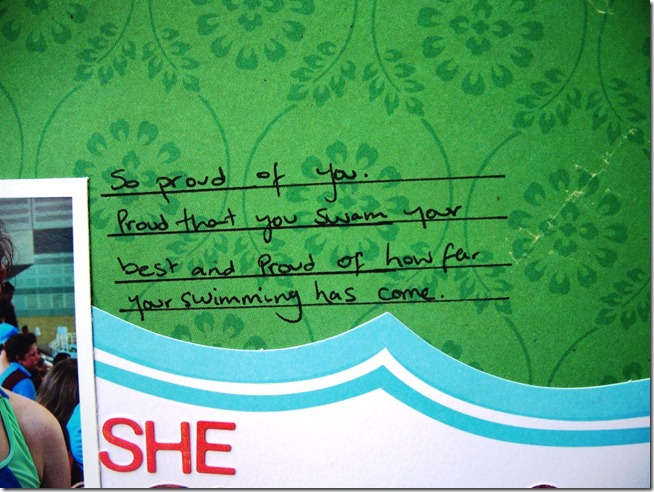 So proud of you.
Proud that you swam your
best and Proud of how far
your swimming has come.
SHE